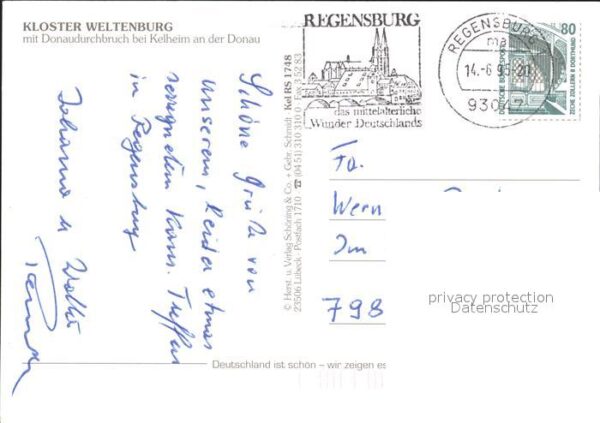 KLOSTER WELTENBURG
mit Donaudurchbruch bei Kelheim an der Donau
REGENSBURG
das mittelalterliche
Wunder Deutschlands
REGENSBURG
ma
14.-6.95-20
93047
80
DEUTSCHE BUNDESPOST
ZECHE ZOLLERN II DORTMUND
Schöne Grüße von
unserem, leider etwas
verregneten Treffen
in Regensburg
Johanna u Walter
© Herst. u. Verlag Schöning & Co. + Gebr. Schmidt Kel RS 1748
23506 Lübeck · Postfach 1710 · ☎ (04 51) 310 310 · Fax 3 52 83
Fa.
Wern
Im
798
privacy protection
Datenschutz
Deutschland ist schön – wir zeigen es